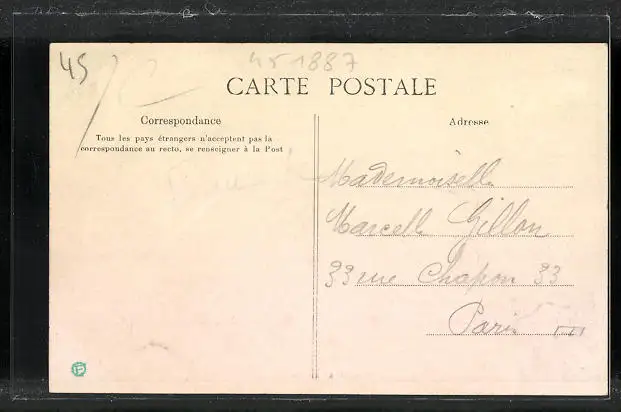 45
45 1887
CARTE POSTALE
Correspondance
Tous les pays étrangers n'acceptent pas la
correspondance au recto, se renseigner à la Post
Adresse
Mademoiselle
Marcelle Gillon
33 rue Chapon 33
Paris III